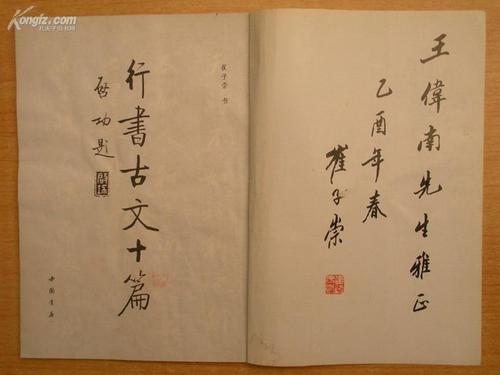 王偉南先生雅正
乙酉年春
崔子崇
崔子崇 书
行書古文十篇
启功题
中国书店
Kongfz.com
孔夫子旧书网